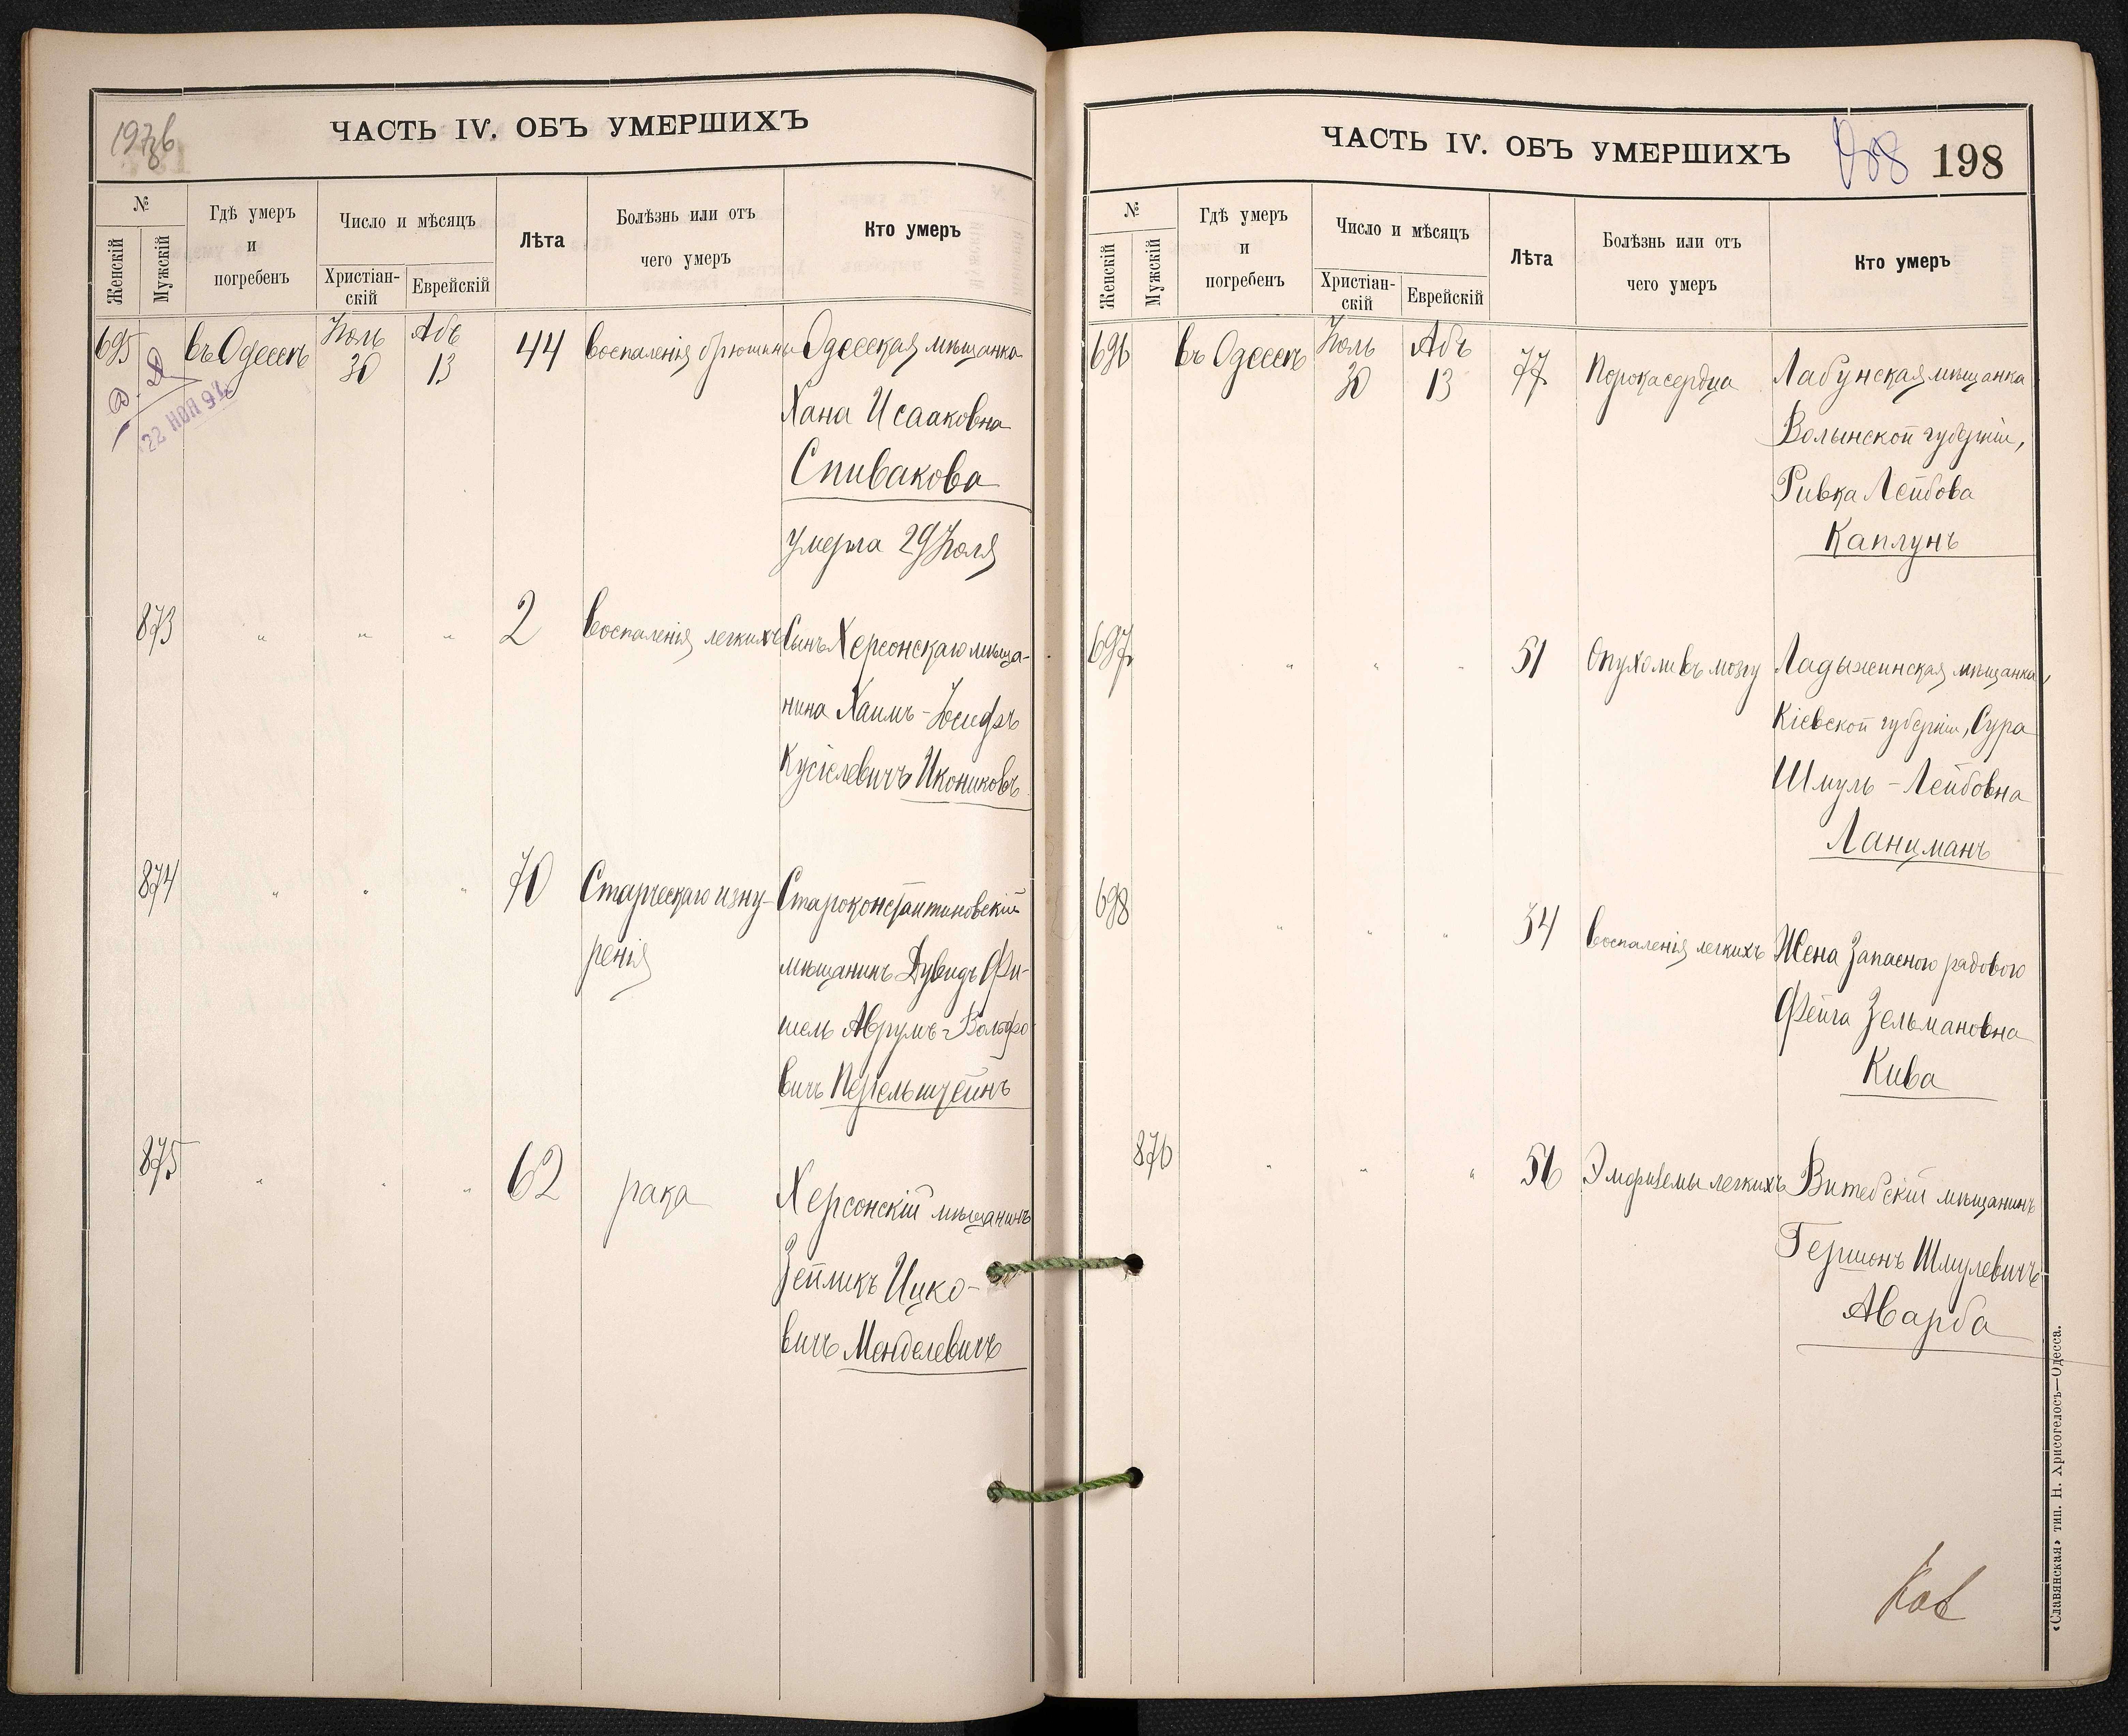 ЧАСТЬ IV. ОБЪ УМЕРШИХЪ
№
Женскій
Мужскій
Гдѣ умеръ
и
погребенъ
Число и мѣсяцъ
Христіан-
скій
Еврейскій
Лѣта
Болѣзнь или отъ
чего умеръ
Кто умеръ
695 въ Одессѣ Іюль 30 Абъ 13 44 воспаленія брюшины Одесская мѣщанка
22 НОЯ 92
Хана Исааковна
Спивакова
умерла 29 Іюля
873 " " " 2 воспаленія легкихъ Сынъ Херсонскаго мѣща-
нина Хаимъ-Іосифъ
Кусіелевичъ Икониковъ
874 " " " 70 Старческаго изну- Староконстантиновскій
ренія мѣщанинъ Дувидъ Фи-
шель Аврумъ-Вольфо
вичъ Перельштейнъ
875 " " " 62 рака Херсонскій мѣщанинъ
Зейликъ Ицко-
вичъ Менделевичъ
ЧАСТЬ IV. ОБЪ УМЕРШИХЪ
198
№
Женскій
Мужскій
Гдѣ умеръ
и
погребенъ
Число и мѣсяцъ
Христіан-
скій
Еврейскій
Лѣта
Болѣзнь или отъ
чего умеръ
Кто умеръ
696 въ Одессѣ Іюль 30 Абъ 13 77 Порока сердца Лабунская мѣщанка
Волынской губерніи,
Ривка Лейбова
Каплунъ
697 " " " 51 Опухоли въ мозгу Ладыжинская мѣщанка,
Кіевской губерніи, Сура
Шмуль-Лейбовна
Ланцманъ
698 " " " 34 воспаленія легкихъ Жена Запасного рядового
Фейга Зельмановна
Кива
876 " " " 56 Эмфиземы легкихъ Витебскій мѣщанинъ
Гершонъ Шмулевичъ
Аварба
«Славянская» тип. Н. Хрисогелосъ—Одесса.